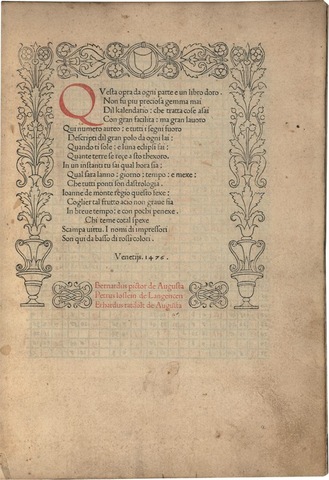 QVesta opra da ogni parte e un libro doro.
Non fu piu preciosa gemma mai
Dil kalendario: che tratta cose asai
Con gran facilita: ma gran lauoro
Qui numero aureo: e tutti i segni fuoro
Descripti dil gran polo da ogni lai:
Quando il sole: e luna eclipsi fai:
Quante terre se rege a sto thexoro.
In un instanti tu sai qual hora sia:
Qual sara lanno: giorno: tempo: e mexe:
Che tutti ponti son dastrologia.
Ioanne de monte regio questo fexe:
Coglier tal frutto acio non graue sia
In breue tempo: e con pochi penexe.
Chi teme cotal spexe
Scampa uirtu. I nomi di impressori
Son qui da basso di rossi colori.
Venetijs. 1476.
Bernardus pictor de Augusta
Petrus loslein de Langencen
Erhardus ratdolt de Augusta